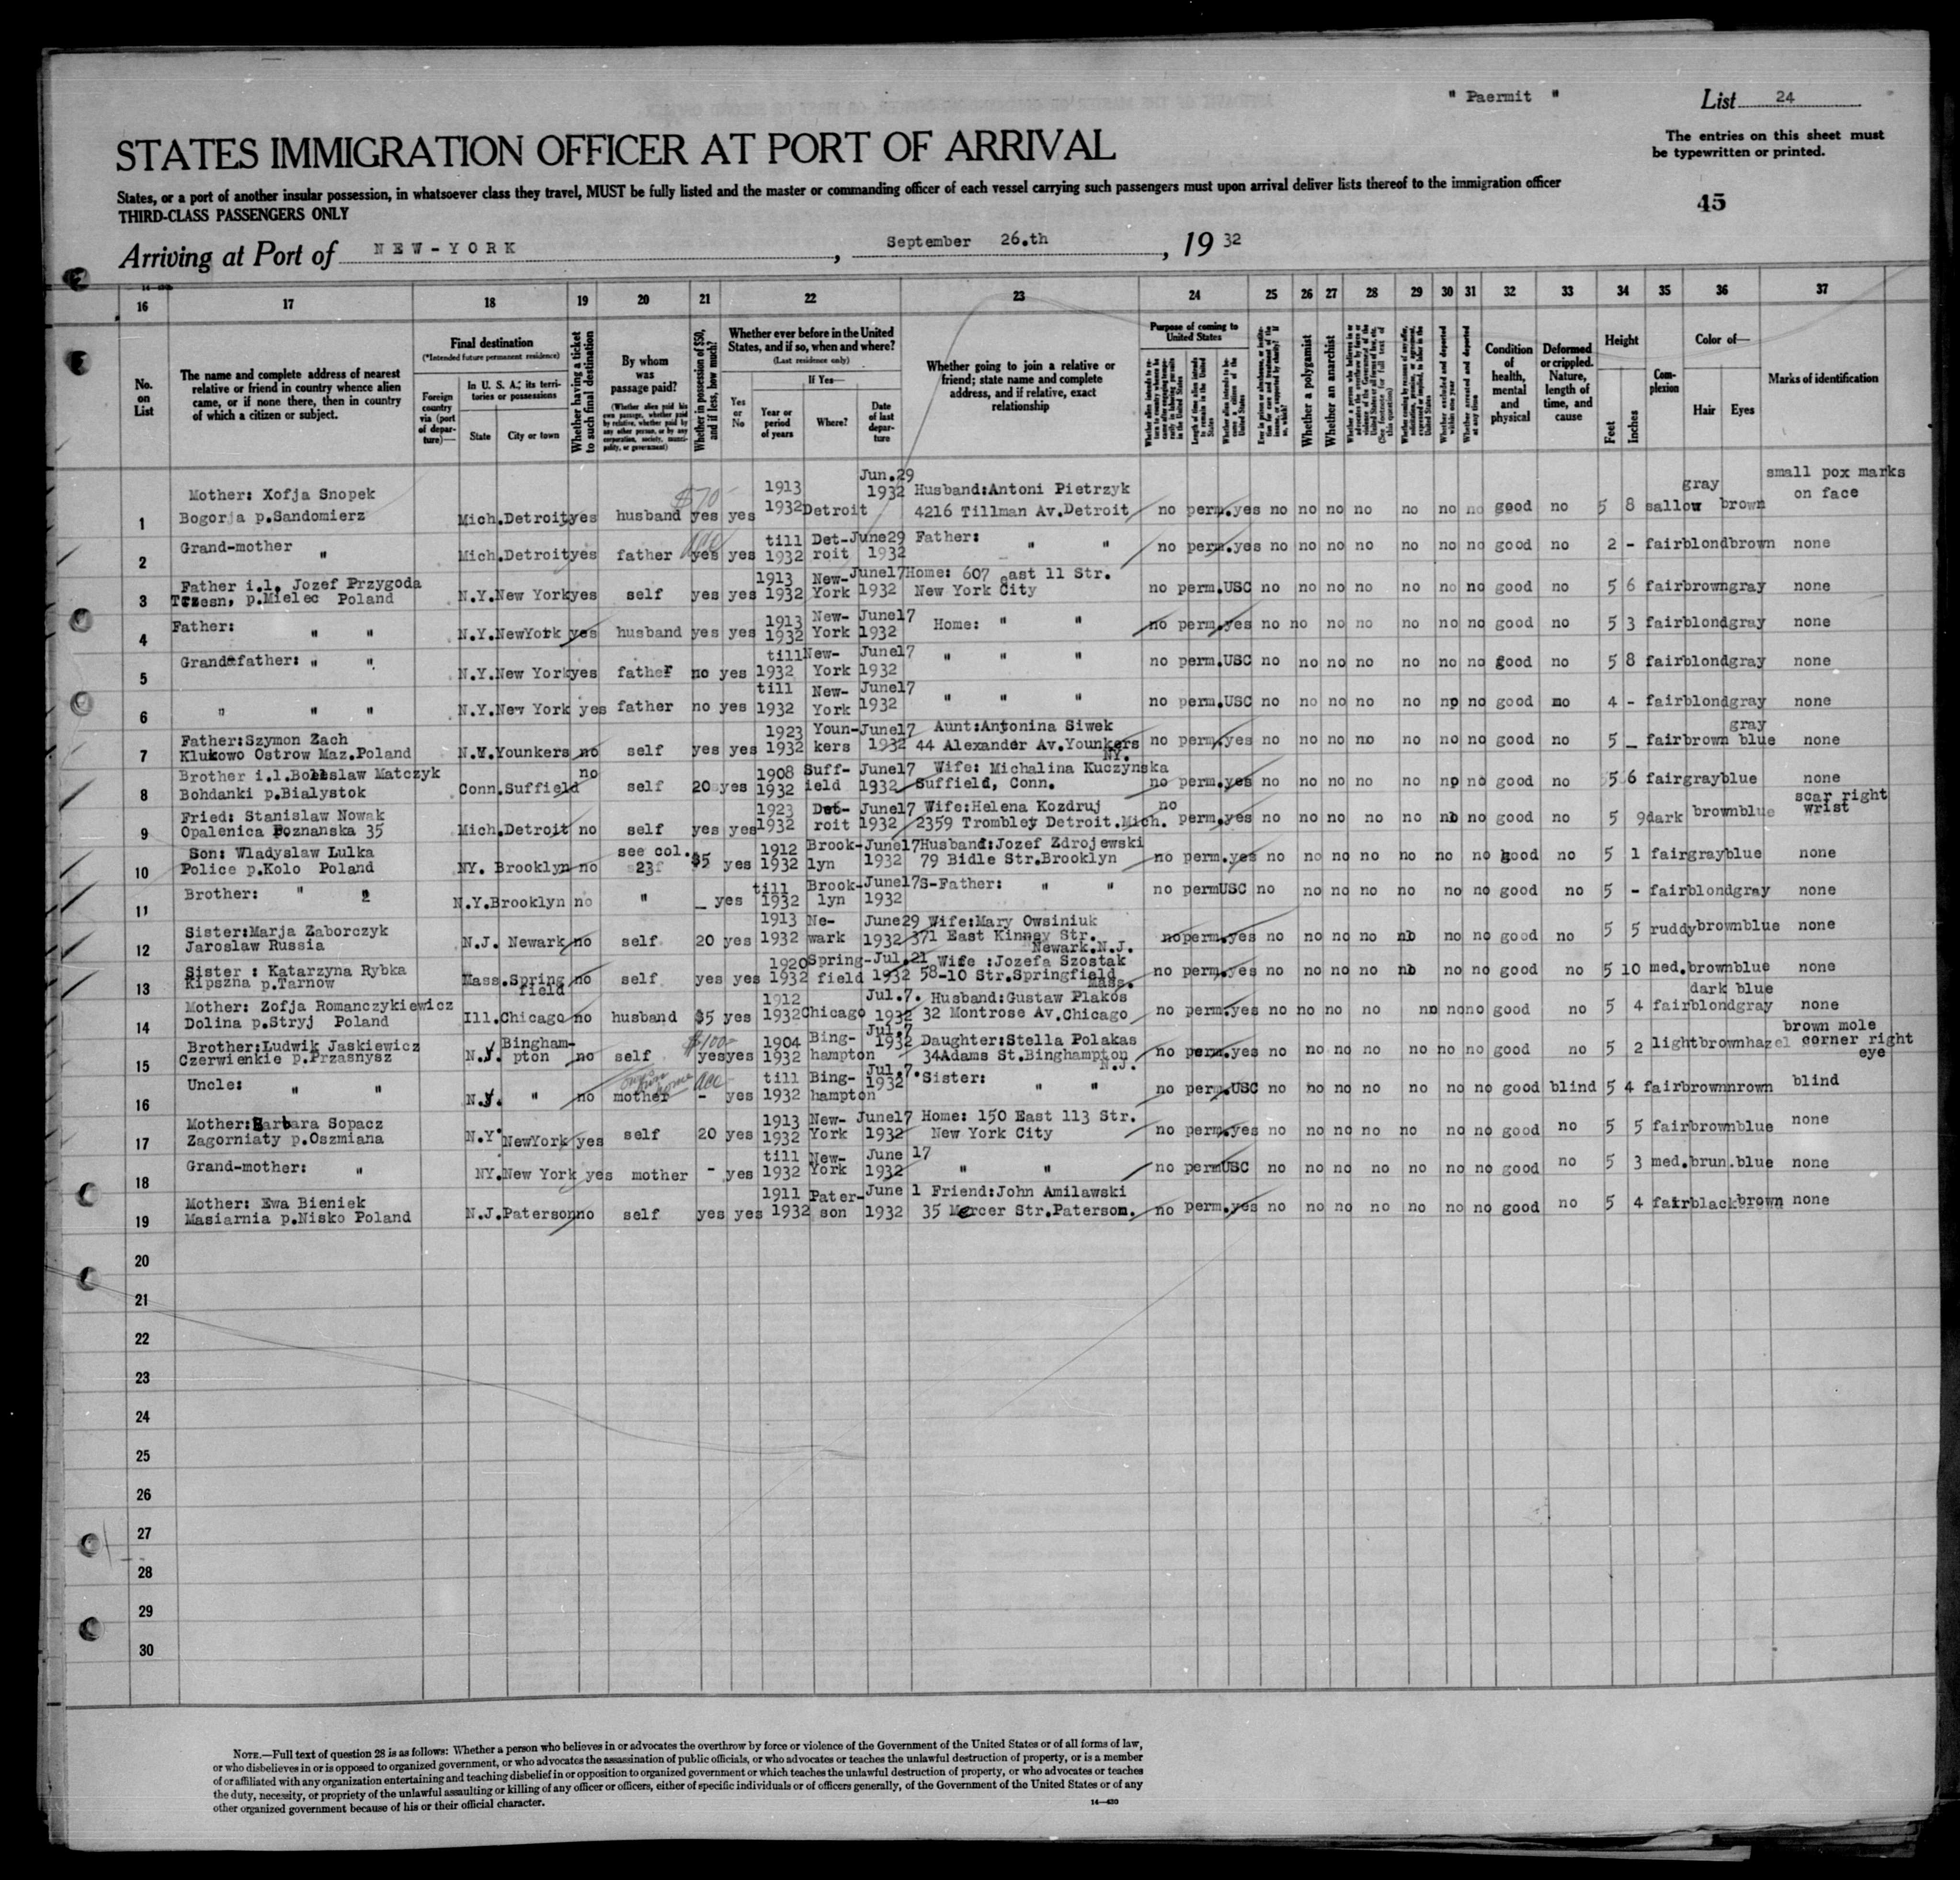 " Paermit "
List 24
STATES IMMIGRATION OFFICER AT PORT OF ARRIVAL
The entries on this sheet must
be typewritten or printed.
States, or a port of another insular possession, in whatsoever class they travel, MUST be fully listed and the master or commanding officer of each vessel carrying such passengers must upon arrival deliver lists thereof to the immigration officer
THIRD-CLASS PASSENGERS ONLY
45
Arriving at Port of NEW-YORK, September 26.th, 19 32
16 17 18 19 20 21 22 23 24 25 26 27 28 29 30 31 32 33 34 35 36 37
No. on List
The name and complete address of nearest relative or friend in country whence alien came, or if none there, then in country of which a citizen or subject.
Final destination
(*Intended future permanent residence)
Foreign country via (port of departure)—
In U. S. A., its territories or possessions
State
City or town
Whether having a ticket to such final destination
By whom was passage paid?
(Whether alien paid his own passage, whether paid by relative, whether paid by any other person, or by any corporation, society, municipality, or government)
Whether in possession of $50, and if less, how much?
Whether ever before in the United States, and if so, when and where?
(Last residence only)
Yes or No
If Yes—
Year or period of years
Where?
Date of last departure
Whether going to join a relative or friend; state name and complete address, and if relative, exact relationship
Purpose of coming to United States
Whether a polygamist
Whether an anarchist
Condition of health, mental and physical
Deformed or crippled. Nature, length of time, and cause
Height
Feet
Inches
Complexion
Color of—
Hair
Eyes
Marks of identification
1 Mother: Xofja Snopek Bogorja p.Sandomierz Mich. Detroit yes husband $70- yes yes 1913 1932 Detroit Jun.29 1932 Husband:Antoni Pietrzyk 4216 Tillman Av.Detroit no perm. yes no no no no no no no good no 5 8 sallow gray brown small pox marks on face
2 Grand-mother " Mich. Detroit yes father yes yes till 1932 Det-roit June29 1932 Father: " " no perm. yes no no no no no no no good no 2 - fair blond brown none
3 Father i.l. Jozef Przygoda Trzesn, p.Mielec Poland N.Y. New York yes self yes yes 1913 1932 New-York June17 1932 Home: 607 east 11 Str. New York City no perm. USC no no no no no no no good no 5 6 fair brown gray none
4 Father: " " N.Y. NewYork yes husband yes yes 1913 1932 New-York June17 1932 Home: " " no perm. yes no no no no no no no good no 5 3 fair blond gray none
5 Grandfather: " " N.Y. New York yes father no yes till 1932 New-York June17 1932 " " " no perm. USC no no no no no no no good no 5 8 fair blond gray none
6 " " " N.Y. New York yes father no yes till 1932 New-York June17 1932 " " " no perm. USC no no no no no no no good no 4 - fair blond gray none
7 Father:Szymon Zach Klukowo Ostrow Maz.Poland N.Y. Younkers no self yes yes 1923 1932 Youn-kers June17 1932 Aunt:Antonina Siwek 44 Alexander Av.Younkers NY. no perm. yes no no no no no no no good no 5 _ fair brown gray blue none
8 Brother i.l.Boleslaw Matczyk Bohdanki p.Bialystok Conn. Suffield no self 20 yes 1908 1932 Suff-ield June17 1932 Wife: Michalina Kuczynska Suffield, Conn. no perm. yes no no no no no no no good no 5 6 fair gray blue none
9 Fried: Stanislaw Nowak Opalenica Poznanska 35 Mich. Detroit no self yes yes 1923 1932 Det-roit June17 1932 Wife:Helena Kozdruj 2359 Trombley Detroit.Mich. no perm. yes no no no no no no no good no 5 9 dark brown blue scar right wrist
10 Son: Wladyslaw Lulka Police p.Kolo Poland NY. Brooklyn no see col. 23 $5 yes 1912 1932 Brook-lyn June17 1932 Husband:Jozef Zdrojewski 79 Bidle Str.Brooklyn no perm. yes no no no no no no no good no 5 1 fair gray blue none
11 Brother: " " N.Y. Brooklyn no " _ yes till 1932 Brook-lyn June17 1932 S-Father: " " no perm USC no no no no no no no good no 5 - fair blond gray none
12 Sister:Marja Zaborczyk Jaroslaw Russia N.J. Newark no self 20 yes 1913 1932 Ne-wark June29 1932 Wife:Mary Owsiniuk 371 East Kinney Str. Newark.N.J. no perm. yes no no no no no no no good no 5 5 ruddy brown blue none
13 Sister : Katarzyna Rybka Kipszna p.Tarnow Mass. Spring field no self yes yes 1920 1932 Spring-field Jul.21 1932 Wife :Jozefa Szostak 58-10 Str.Springfield Mass. no perm. yes no no no no no no no good no 5 10 med. brown blue none
14 Mother: Zofja Romanczykiewicz Dolina p.Stryj Poland Ill. Chicago no husband $5 yes 1912 1932 Chicago Jul.7. 1932 Husband:Gustaw Plakos 32 Montrose Av.Chicago no perm. yes no no no no no no good no 5 4 fair blond gray dark blue none
15 Brother:Ludwik Jaskiewicz Czerwienkie p.Przasnysz N.Y. Bingham-pton no self $100- yes yes 1904 1932 Bing-hampton Jul.7 1932 Daughter:Stella Polakas 34Adams St.Binghampton N.J. no perm. yes no no no no no no no good no 5 2 light brown hazel brown mole corner right eye
16 Uncle: " " N.Y. " no mother - yes till 1932 Bing-hampton Jul.7. 1932 Sister: " " no perm. USC no no no no no no no good blind 5 4 fair brown nrown blind
17 Mother:Barbara Sopacz Zagorniaty p.Oszmiana N.Y. NewYork yes self 20 yes 1913 1932 New-York June17 1932 Home: 150 East 113 Str. New York City no perm. yes no no no no no no no good no 5 5 fair brown blue none
18 Grand-mother: " NY. New York yes mother - yes till 1932 New-York June 17 1932 " " no perm USC no no no no no no no good no 5 3 med. brun. blue none
19 Mother: Ewa Bieniek Masiarnia p.Nisko Poland N.J. Paterson no self yes yes 1911 1932 Pater-son June 1 1932 Friend:John Amilawski 35 Mercer Str.Paterson. no perm. yes no no no no no no no good no 5 4 fair black brown none
20
21
22
23
24
25
26
27
28
29
30
NOTE.—Full text of question 28 is as follows: Whether a person who believes in or advocates the overthrow by force or violence of the Government of the United States or of all forms of law,
or who disbelieves in or is opposed to organized government, or who advocates the assassination of public officials, or who advocates or teaches the unlawful destruction of property, or is a member
of or affiliated with any organization entertaining and teaching disbelief in or opposition to organized government or which teaches the unlawful destruction of property, or who advocates or teaches
the duty, necessity, or propriety of the unlawful assaulting or killing of any officer or officers, either of specific individuals or of officers generally, of the Government of the United States or of any
other organized government because of his or their official character.
14—430